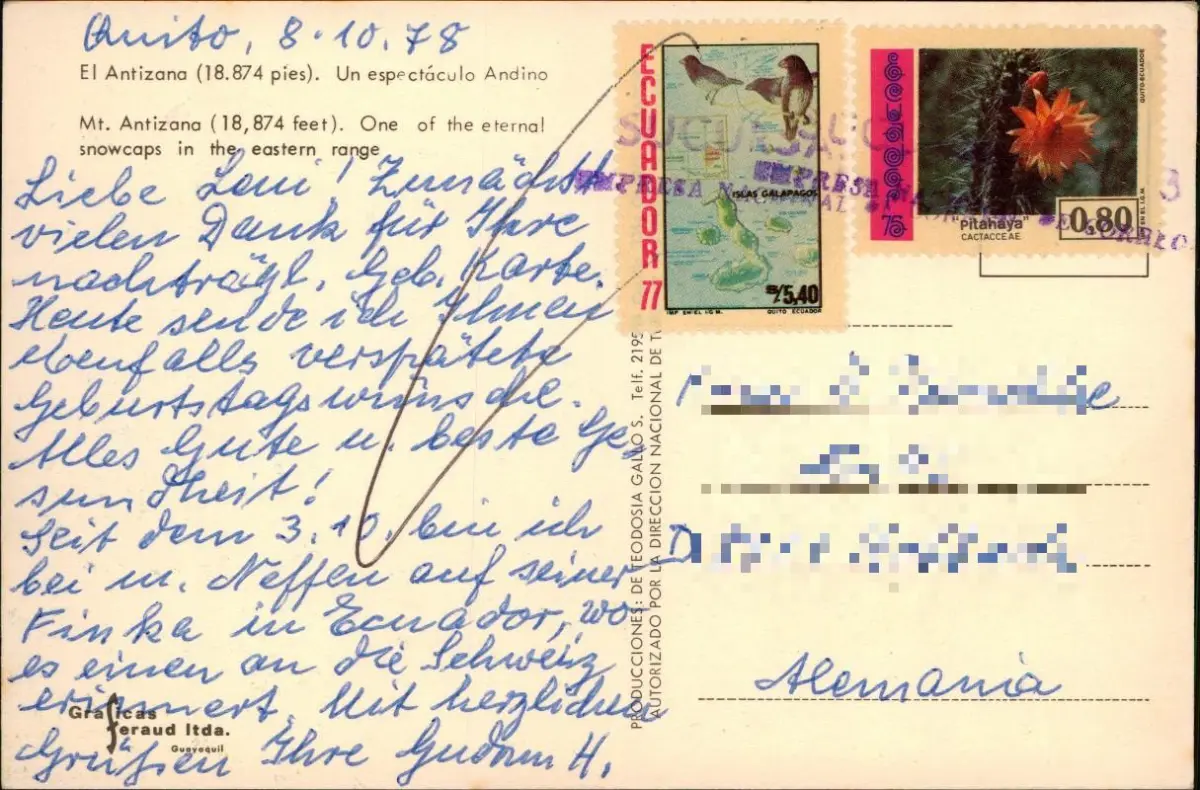 Quito, 8.10.78
El Antizana (18.874 pies). Un espectáculo Andino
Mt. Antizana (18,874 feet). One of the eternal
snowcaps in the eastern range
Liebe Loni! Zunächst
vielen Dank für Ihre
nachträgl. Geb. Karte.
Heute sende ich Ihnen
ebenfalls verspätete
Geburtstagswünsche.
Alles Gute u. beste Ge-
sundheit!
Seit dem 3.10. bin ich
bei m. Neffen auf seiner
Finka in Ecuador, wo
es einen an die Schweiz
erinnert. Mit herzlichen
Grüßen Ihre Gudrun H.
Graficas
feraud ltda.
Guayaquil
PRODUCCIONES: DE TEODOSIA GALLO S. Telf. 2195
AUTORIZADO POR LA DIRECCION NACIONAL DE
ECUADOR 77
ISLAS GALAPAGOS
S/. 5,40
IMP EN EL I.G.M. QUITO ECUADOR
QUITO-ECUADOR
EN EL I.G.M.
76
"Pitahaya"
CACTACCEAE
0,80
EMPRESA NACIONAL DE CORREO
Alemania